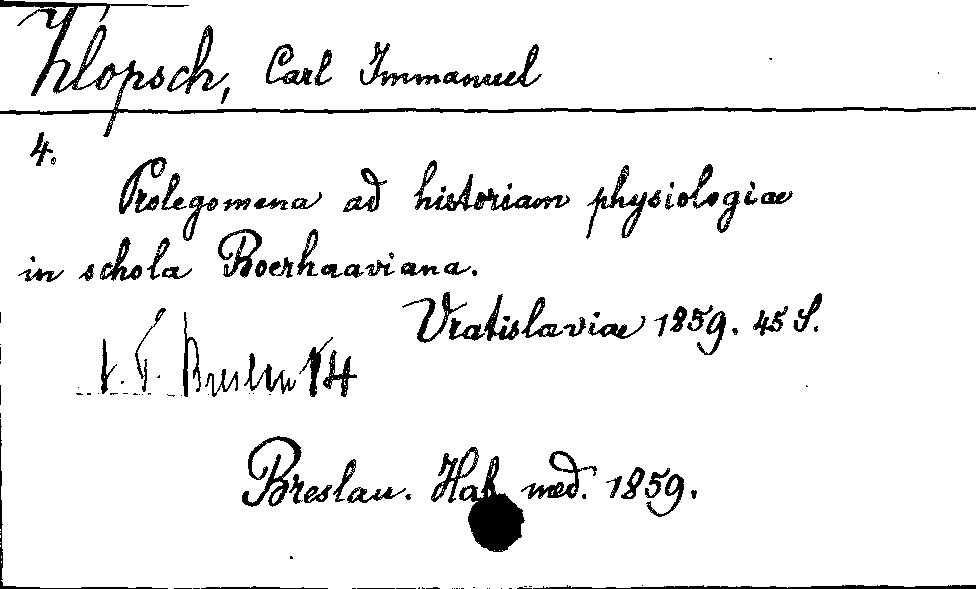 Klopsch, Carl Immanuel
4.
Prolegomena ad historiam physiologiae
in schola Boerhaaviana.
Vratislaviae 1859. 45 S.
Breslau 14
Breslau. Hab. med. 1859.